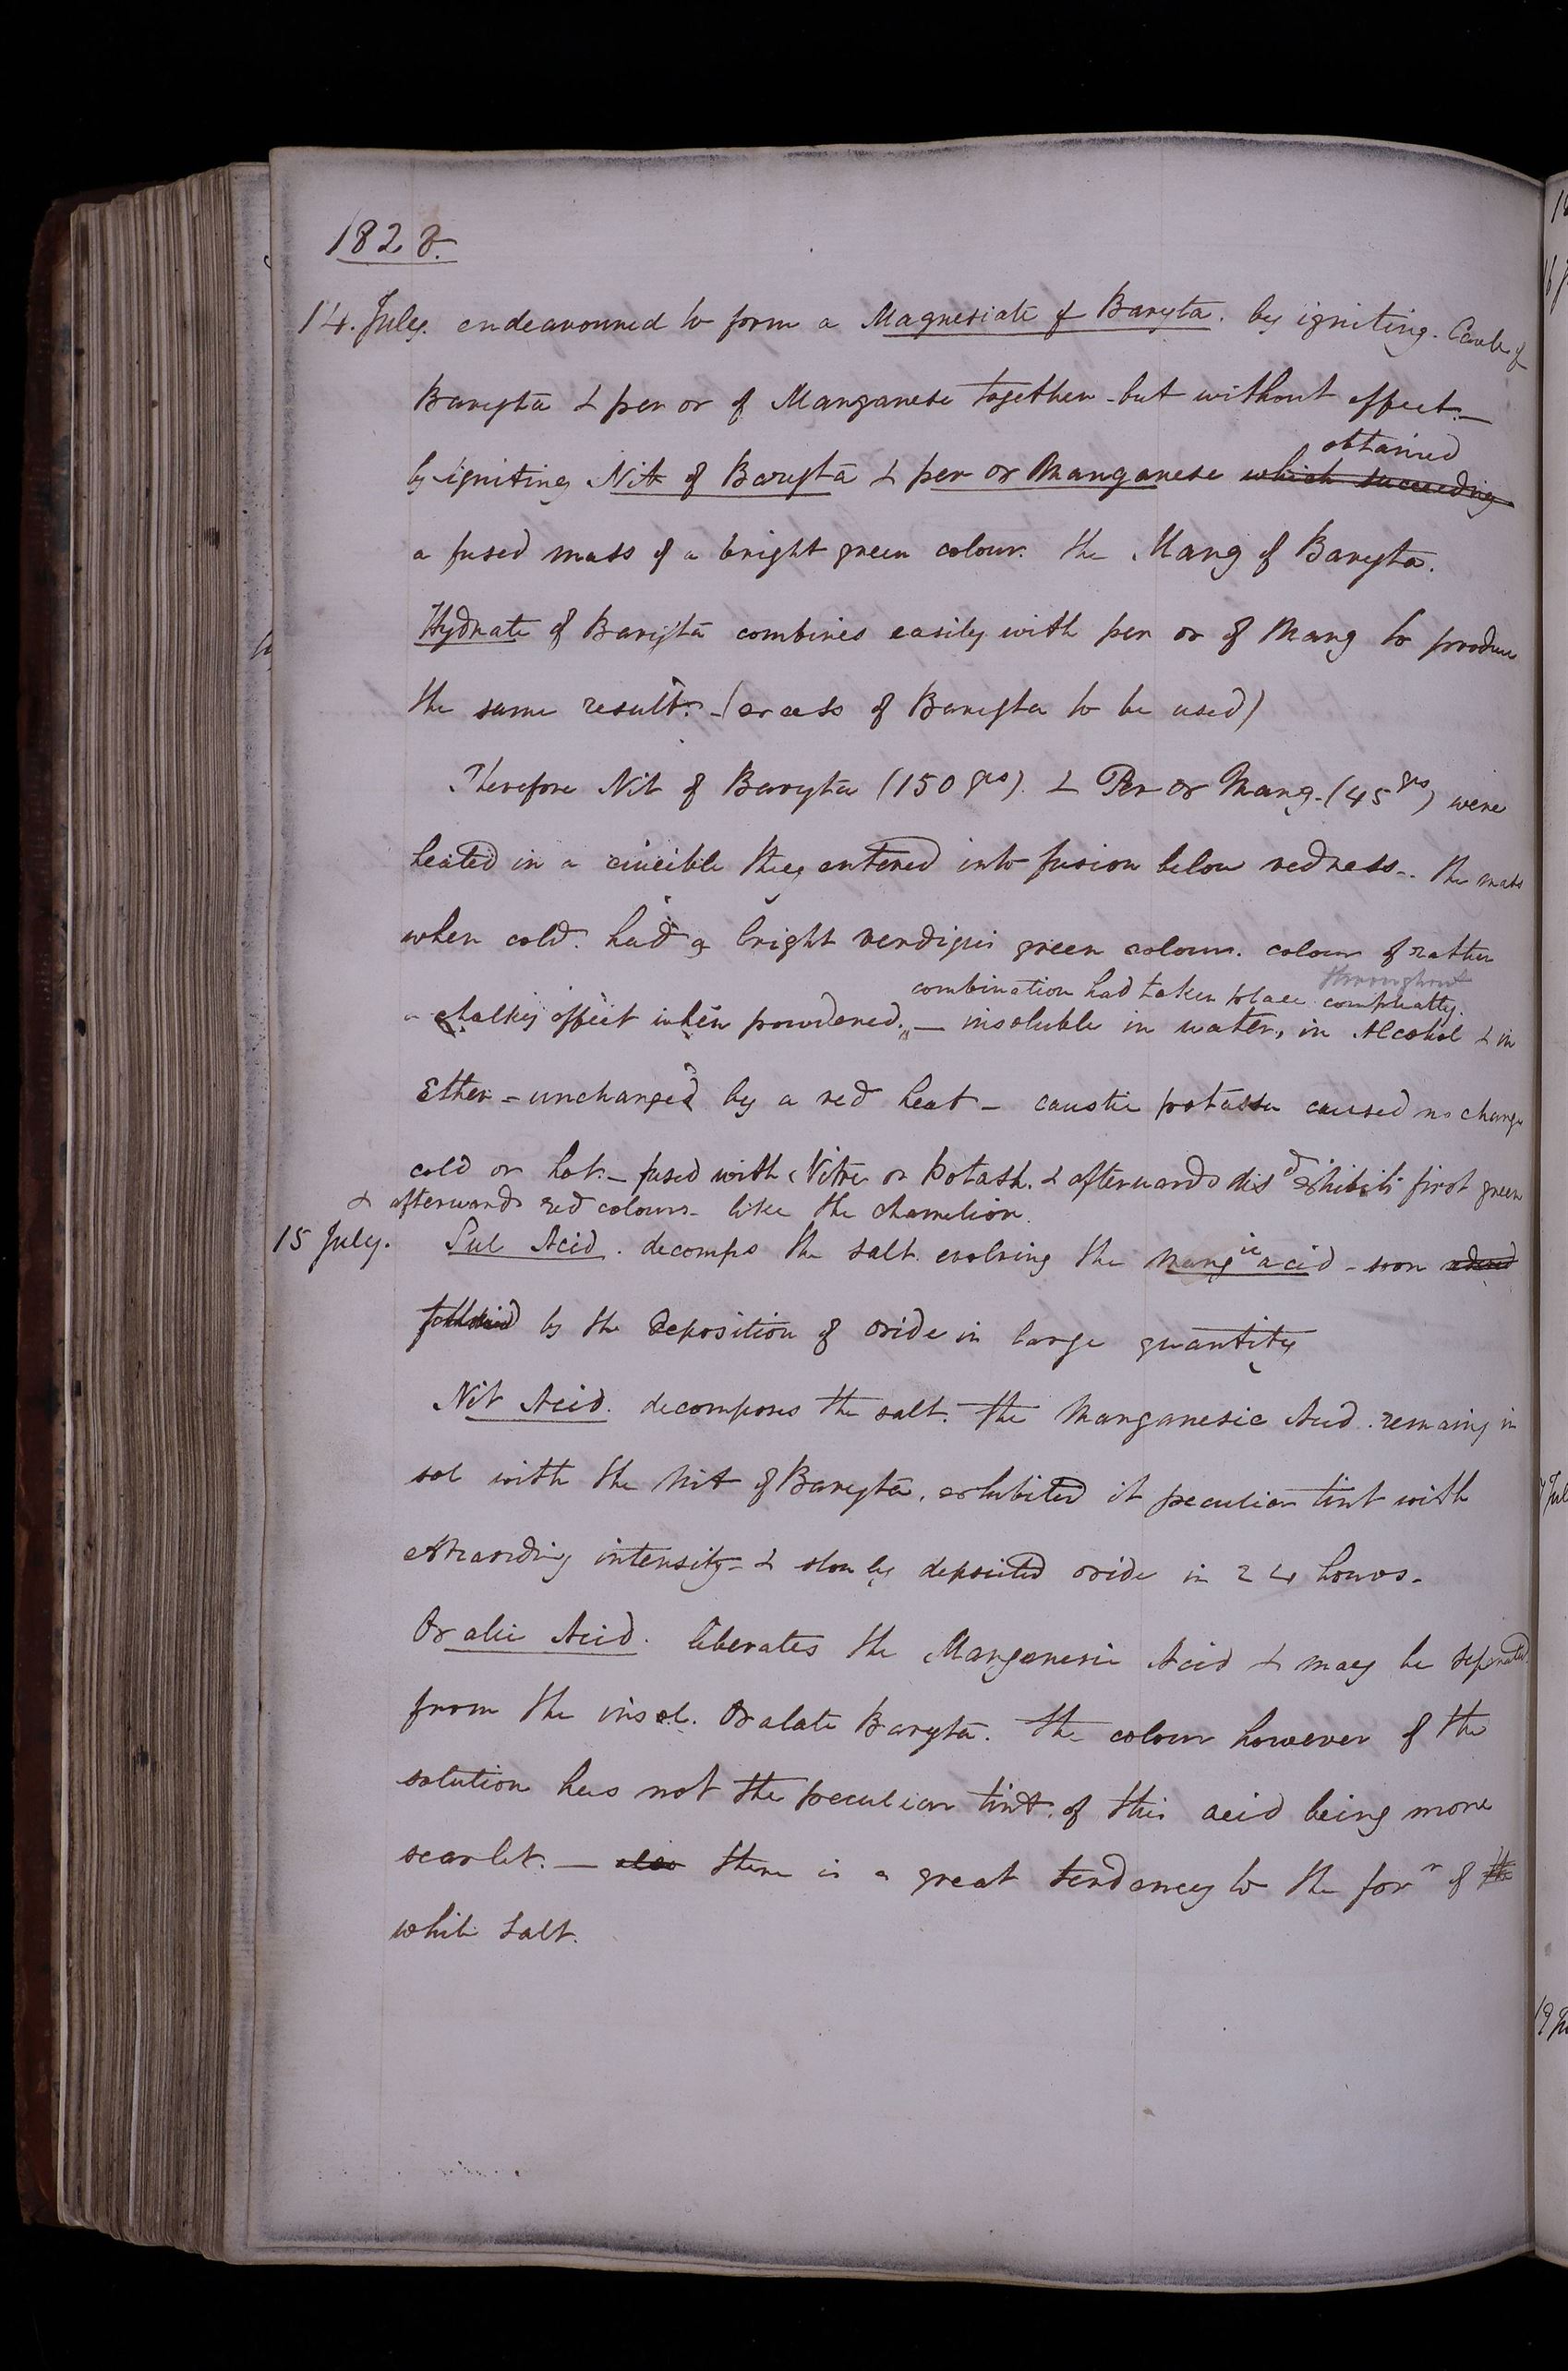 1828.
14. July. endeavoured to form a Magnesiate of Baryta. by igniting. Carb of
Baryta & per ox of Manganese together - but without effect. —
obtained
by igniting Nitt of Baryta & per ox Manganese which succeeding
a fused mass of a bright green colour. the Mang of Baryta.
Hydrate of Baryta combines easily with per ox of Mang to produce
the same result. - (excess of Baryta to be used)
Therefore Nit of Baryta (150 grs). & Per ox Mang. (45 grs) were
heated in a crucible they entered into fusion below redness -. the mass
when cold. had a bright verdigris green colour. colour of rather
throughout
combination had taken place compleatly.
a chalky effect when powdered. — insoluble in water, in Alcohol & in
Ether - unchanged by a red heat - caustic potassa caused no change
cold or hot. - fused with Nitre or Potash. & afterwards disd exhibits first green
& afterwards red colours - like the chamelion.
15 July. Sul Acid. decomps the salt. evolving the Mangic acid - soon
followed by the deposition of oxide in large quantity
Nit Acid. decomposes the salt. the Manganesic Acid. remaing in
sol with the Nit of Baryta, exhibited it peculiar tint with
extraording intensity - & slowly deposited oxide in 24 hours -
Oxalic Acid. liberates the Manganesic Acid & may be seperated
from the insol. Oxalate Baryta. the colour however of the
solution has not the peculiar tint. of this acid being more
scarlet. — also there is a great tendency to the forn of the
white salt.